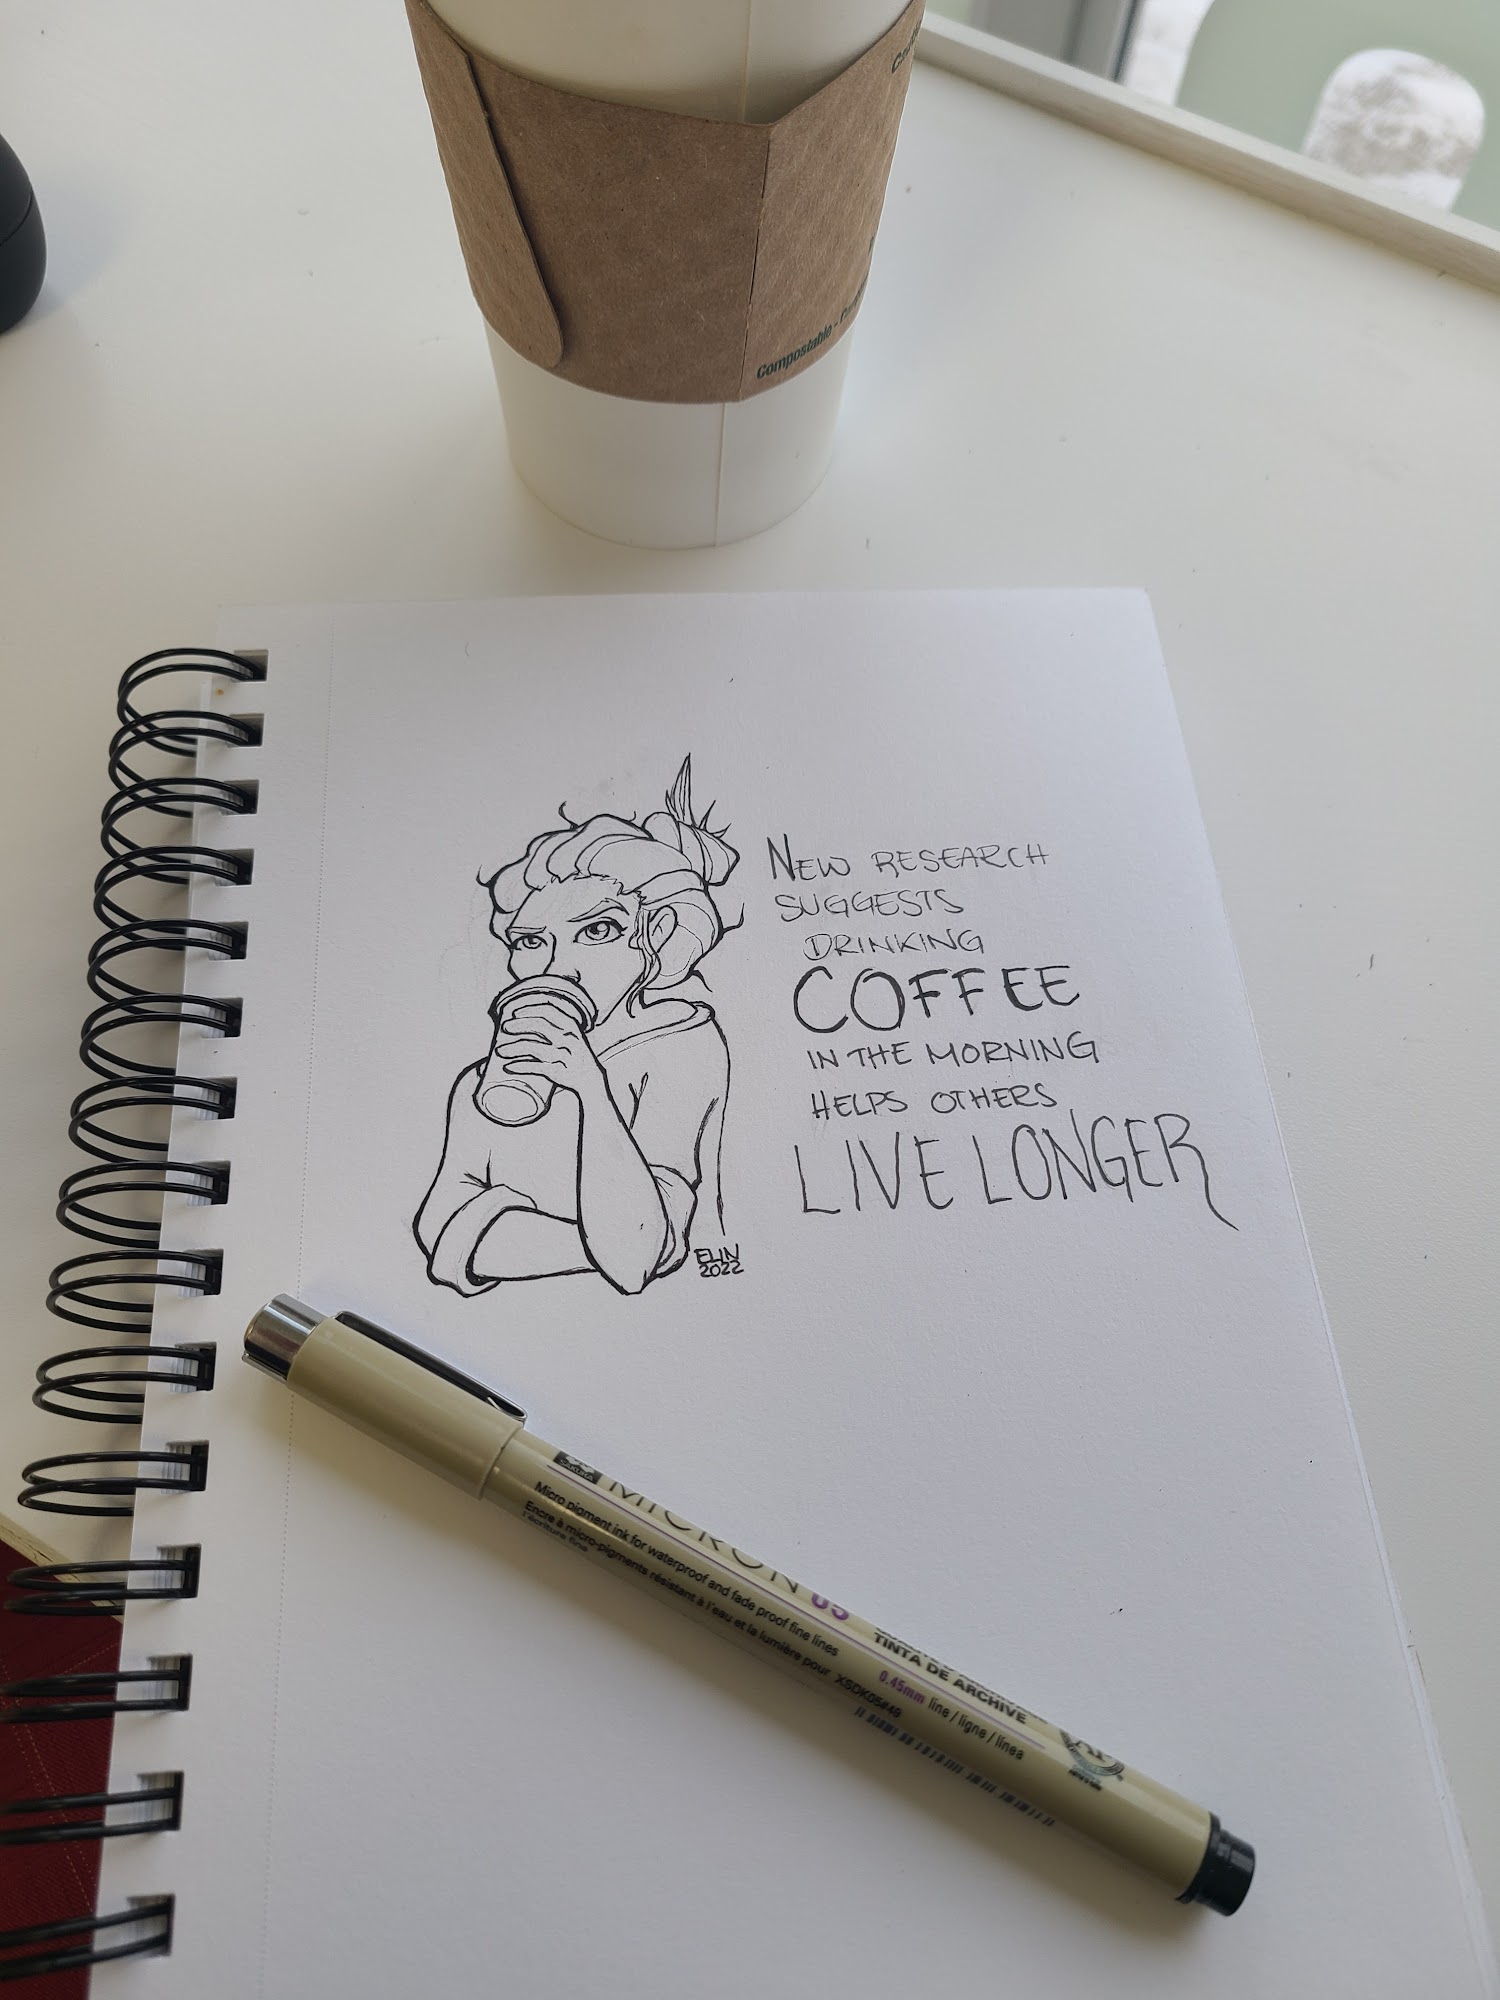 Compostable
NEW RESEARCH
SUGGESTS
DRINKING
COFFEE
IN THE MORNING
HELPS OTHERS
LIVE LONGER
ELIN
2022
SAKURA
MICRON 05
Micro pigment ink for waterproof and fade proof fine lines
Encre à micro-pigments résistant à l'eau et la lumière pour
l'écriture fine
XSDK05#49
TINTA DE ARCHIVE
0.45mm line / ligne / línea